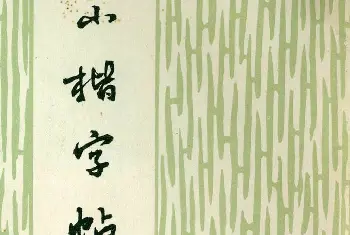 小楷字帖